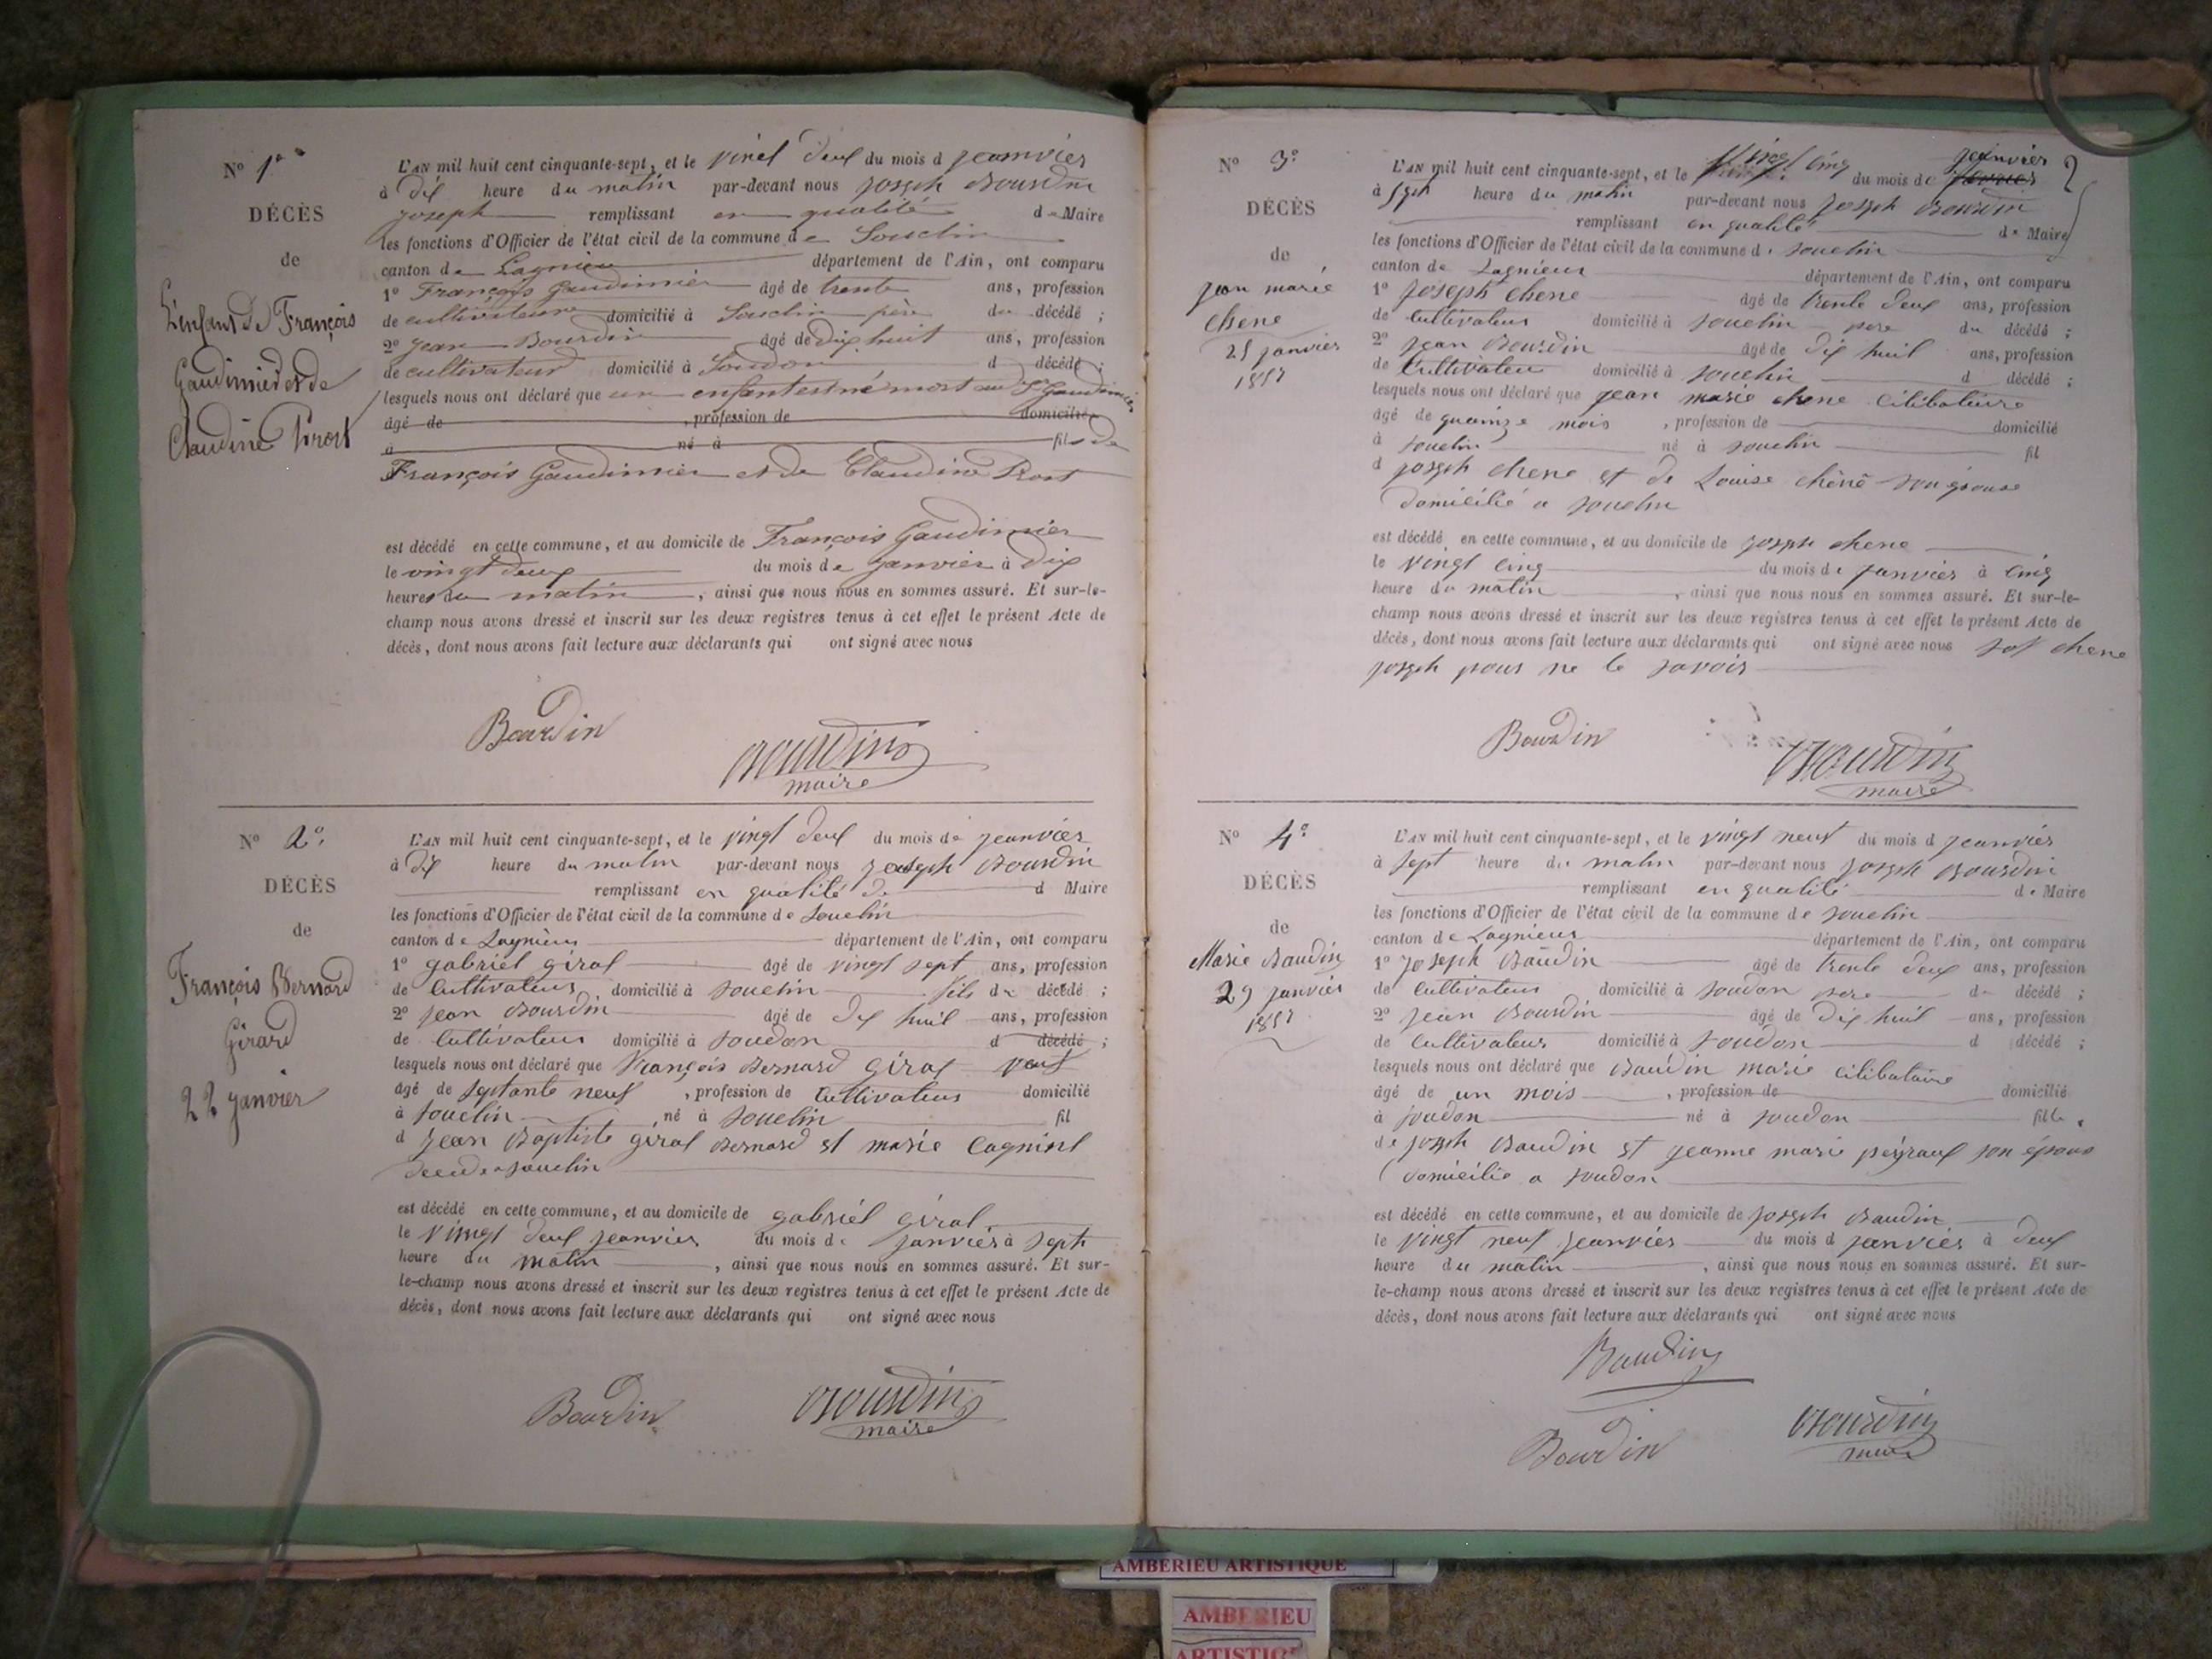 N° 1°
DÉCÈS
de
L'enfant de François
Gaudimier et de
Claudine Prost
L'AN mil huit cent cinquante-sept, et le vinct deux du mois d jeanviér
à dix heure du matin par-devant nous joseph Bourdin
joseph remplissant en qualité de Maire
les fonctions d'Officier de l'état civil de la commune de Souclin
canton de Lagnieu département de l'Ain, ont comparu
1° François Gaudimier âgé de trente ans, profession
de cultivateur domicilié à Souclin père du décédé ;
2° Jean Bourdin âgé de dix huit ans, profession
de cultivateur domicilié à Soudon d décédé ;
lesquels nous ont déclaré que un enfant est né mort au Sr Gaudimier
âgé de , profession de domicilié
à né à fils de
François Gaudimier et de Claudine Prost
est décédé en cette commune, et au domicile de François Gaudimier
le vingt deux du mois de janvier à dix
heures du matin , ainsi que nous nous en sommes assuré. Et sur-le-
champ nous avons dressé et inscrit sur les deux registres tenus à cet effet le présent Acte de
décès, dont nous avons fait lecture aux déclarants qui ont signé avec nous
Bourdin Bourdin
maire
N° 2°
DÉCÈS
de
François Bernard
Girard
22 janvier
L'AN mil huit cent cinquante-sept, et le vingt deux du mois de jeanvier
à dix heure du matin par-devant nous joseph Bourdin
remplissant en qualité de d Maire
les fonctions d'Officier de l'état civil de la commune de Souclin
canton de Lagnieu département de l'Ain, ont comparu
1° gabriel girat âgé de vingt sept ans, profession
de cultivateur domicilié à souclin fils du décédé ;
2° jean Bourdin âgé de dix huit ans, profession
de cultivateur domicilié à soudon d décédé ;
lesquels nous ont déclaré que François Bernard girat veuf
âgé de septante neuf , profession de cultivateur domicilié
à souclin né à souclin fil
d jean Baptiste girat Bernard et marie
souclin
est décédé en cette commune, et au domicile de gabriel girat
le vingt deux jeanvier du mois de janvier à sept
heure du matin , ainsi que nous nous en sommes assuré. Et sur-
le-champ nous avons dressé et inscrit sur les deux registres tenus à cet effet le présent Acte de
décès, dont nous avons fait lecture aux déclarants qui ont signé avec nous
Bourdin Bourdin
maire
N° 3°
DÉCÈS
de
jean marie
chene
25 janvier
1857
L'AN mil huit cent cinquante-sept, et le vingt cinq du mois de janvier 2
à sept heure du matin par-devant nous joseph Bourdin
remplissant en qualité de Maire
les fonctions d'Officier de l'état civil de la commune d. souclin
canton de Lagnieu département de l'Ain, ont comparu
1° joseph chene âgé de trente deux ans, profession
de cultivateur domicilié à souclin pere du décédé ;
2° jean Bourdin âgé de dix huit ans, profession
de cultivateur domicilié à souclin d décédé ;
lesquels nous ont déclaré que jean marie chene célibataire
âgé de quainze mois , profession de domicilié
à souclin né à souclin fil
d joseph chene et de Louise chêne son épouse
domicilié a souclin
est décédé en cette commune, et au domicile de joseph chene
le vingt cinq du mois de janvier à cinq
heure du matin , ainsi que nous nous en sommes assuré. Et sur-le-
champ nous avons dressé et inscrit sur les deux registres tenus à cet effet le présent Acte de
décès, dont nous avons fait lecture aux déclarants qui ont signé avec nous sof chene
joseph pour ne le savoir
Bourdin Bourdin
maire
N° 4°
DÉCÈS
de
Marie Baudin
29 janvier
1857
L'AN mil huit cent cinquante-sept, et le vingt neuf du mois d jeanvier
à sept heure du matin par-devant nous joseph Bourdin
remplissant en qualité de Maire
les fonctions d'Officier de l'état civil de la commune de souclin
canton de Lagnieu département de l'Ain, ont comparu
1° joseph Baudin âgé de trente deux ans, profession
de cultivateur domicilié à soudon pere du décédé ;
2° jean Bourdin âgé de dix huit ans, profession
de cultivateur domicilié à soudon d décédé ;
lesquels nous ont déclaré que Baudin marie célibataire
âgé de un mois , profession de domicilié
à soudon né à soudon fille
de joseph Baudin et jeanne marie peyraux son épouse
domicilié a soudon
est décédé en cette commune, et au domicile de joseph Baudin
le vingt neuf jeanvier du mois d janvier à deux
heure du matin , ainsi que nous nous en sommes assuré. Et sur-
le-champ nous avons dressé et inscrit sur les deux registres tenus à cet effet le présent Acte de
décès, dont nous avons fait lecture aux déclarants qui ont signé avec nous
Baudin
Bourdin Bourdin
maire
AMBERIEU ARTISTIQUE
AMBERIEU
ARTISTIQUE